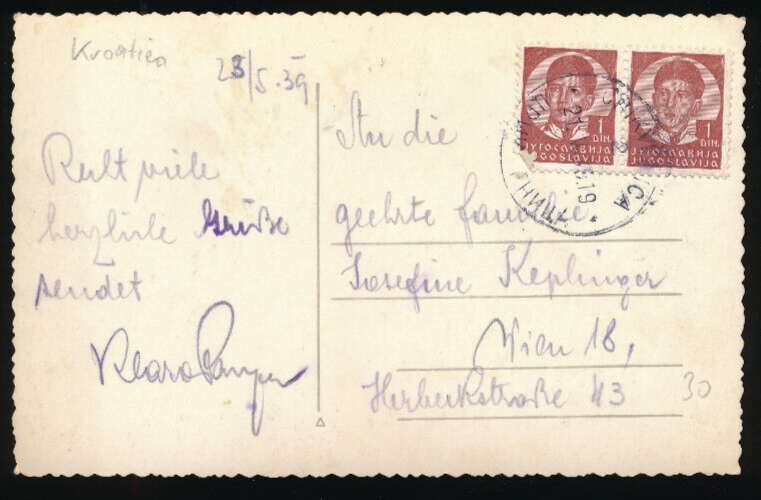 Kroatien
23/5.39
Recht viele
herzliche Grüße
sendet
Klara
An die
geehrte Familie
Josefine Keplinger
Wien 18,
Herbeckstraße 43
30
1
DIN.
ЈУГОСЛАВИЈА
JUGOSLAVIJA
1
DIN.
ЈУГОСЛАВИЈА
JUGOSLAVIJA